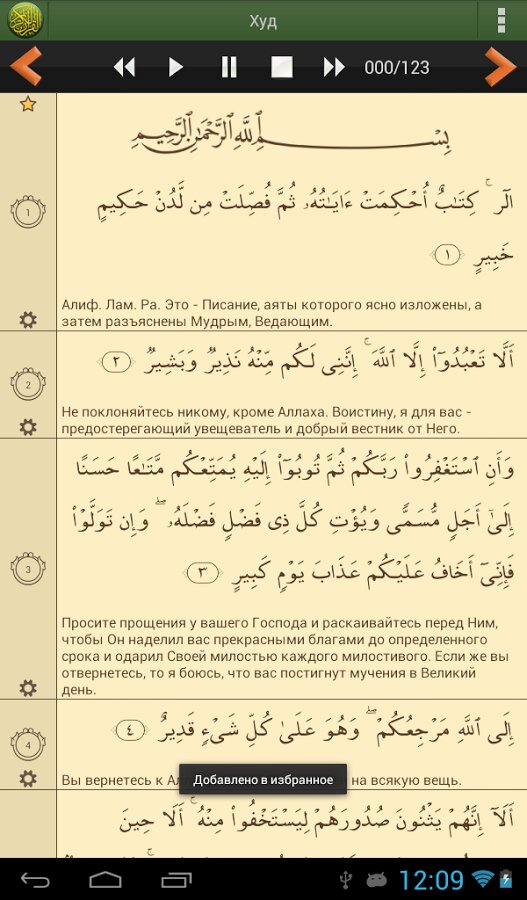 Худ
000/123
بِسْمِ ٱللَّهِ ٱلرَّحْمَٰنِ ٱلرَّحِيمِ
1
الٓر ۚ كِتَٰبٌ أُحْكِمَتْ ءَايَٰتُهُۥ ثُمَّ فُصِّلَتْ مِن لَّدُنْ حَكِيمٍ
خَبِيرٍ ١
Алиф. Лам. Ра. Это - Писание, аяты которого ясно изложены, а
затем разъяснены Мудрым, Ведающим.
2
أَلَّا تَعْبُدُوٓا۟ إِلَّا ٱللَّهَ ۚ إِنَّنِى لَكُم مِّنْهُ نَذِيرٌ وَبَشِيرٌ ٢
Не поклоняйтесь никому, кроме Аллаха. Воистину, я для вас -
предостерегающий увещеватель и добрый вестник от Него.
3
وَأَنِ ٱسْتَغْفِرُوا۟ رَبَّكُمْ ثُمَّ تُوبُوٓا۟ إِلَيْهِ يُمَتِّعْكُم مَّتَٰعًا حَسَنًا
إِلَىٰٓ أَجَلٍ مُّسَمًّى وَيُؤْتِ كُلَّ ذِى فَضْلٍ فَضْلَهُۥ ۖ وَإِن تَوَلَّوْا۟
فَإِنِّىٓ أَخَافُ عَلَيْكُمْ عَذَابَ يَوْمٍ كَبِيرٍ ٣
Просите прощения у вашего Господа и раскаивайтесь перед Ним,
чтобы Он наделил вас прекрасными благами до определенного
срока и одарил Своей милостью каждого милостивого. Если же вы
отвернетесь, то я боюсь, что вас постигнут мучения в Великий
день.
4
إِلَى ٱللَّهِ مَرْجِعُكُمْ ۖ وَهُوَ عَلَىٰ كُلِّ شَىْءٍ قَدِيرٌ ٤
Вы вернетесь к на всякую вещь.
Добавлено в избранное
أَلَآ إِنَّهُمْ يَثْنُونَ صُدُورَهُمْ لِيَسْتَخْفُوا۟ مِنْهُ ۚ أَلَا حِينَ
12:09